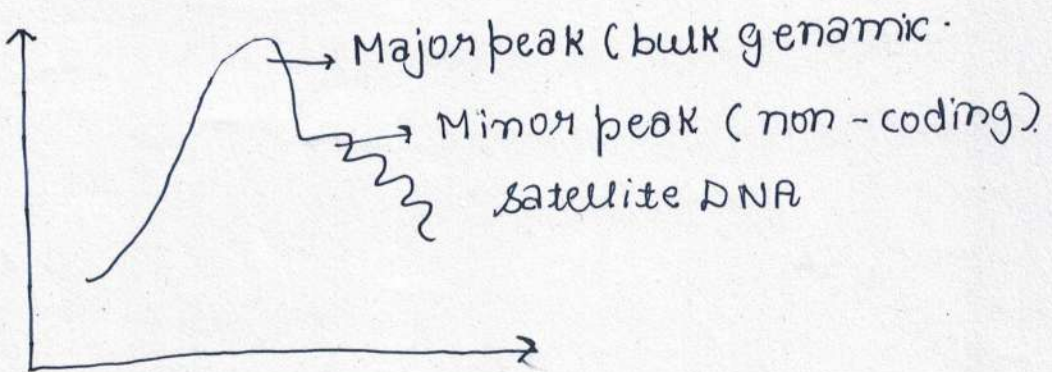 Major peak (bulk genamic.
Minor peak (non-coding).
satellite DNA